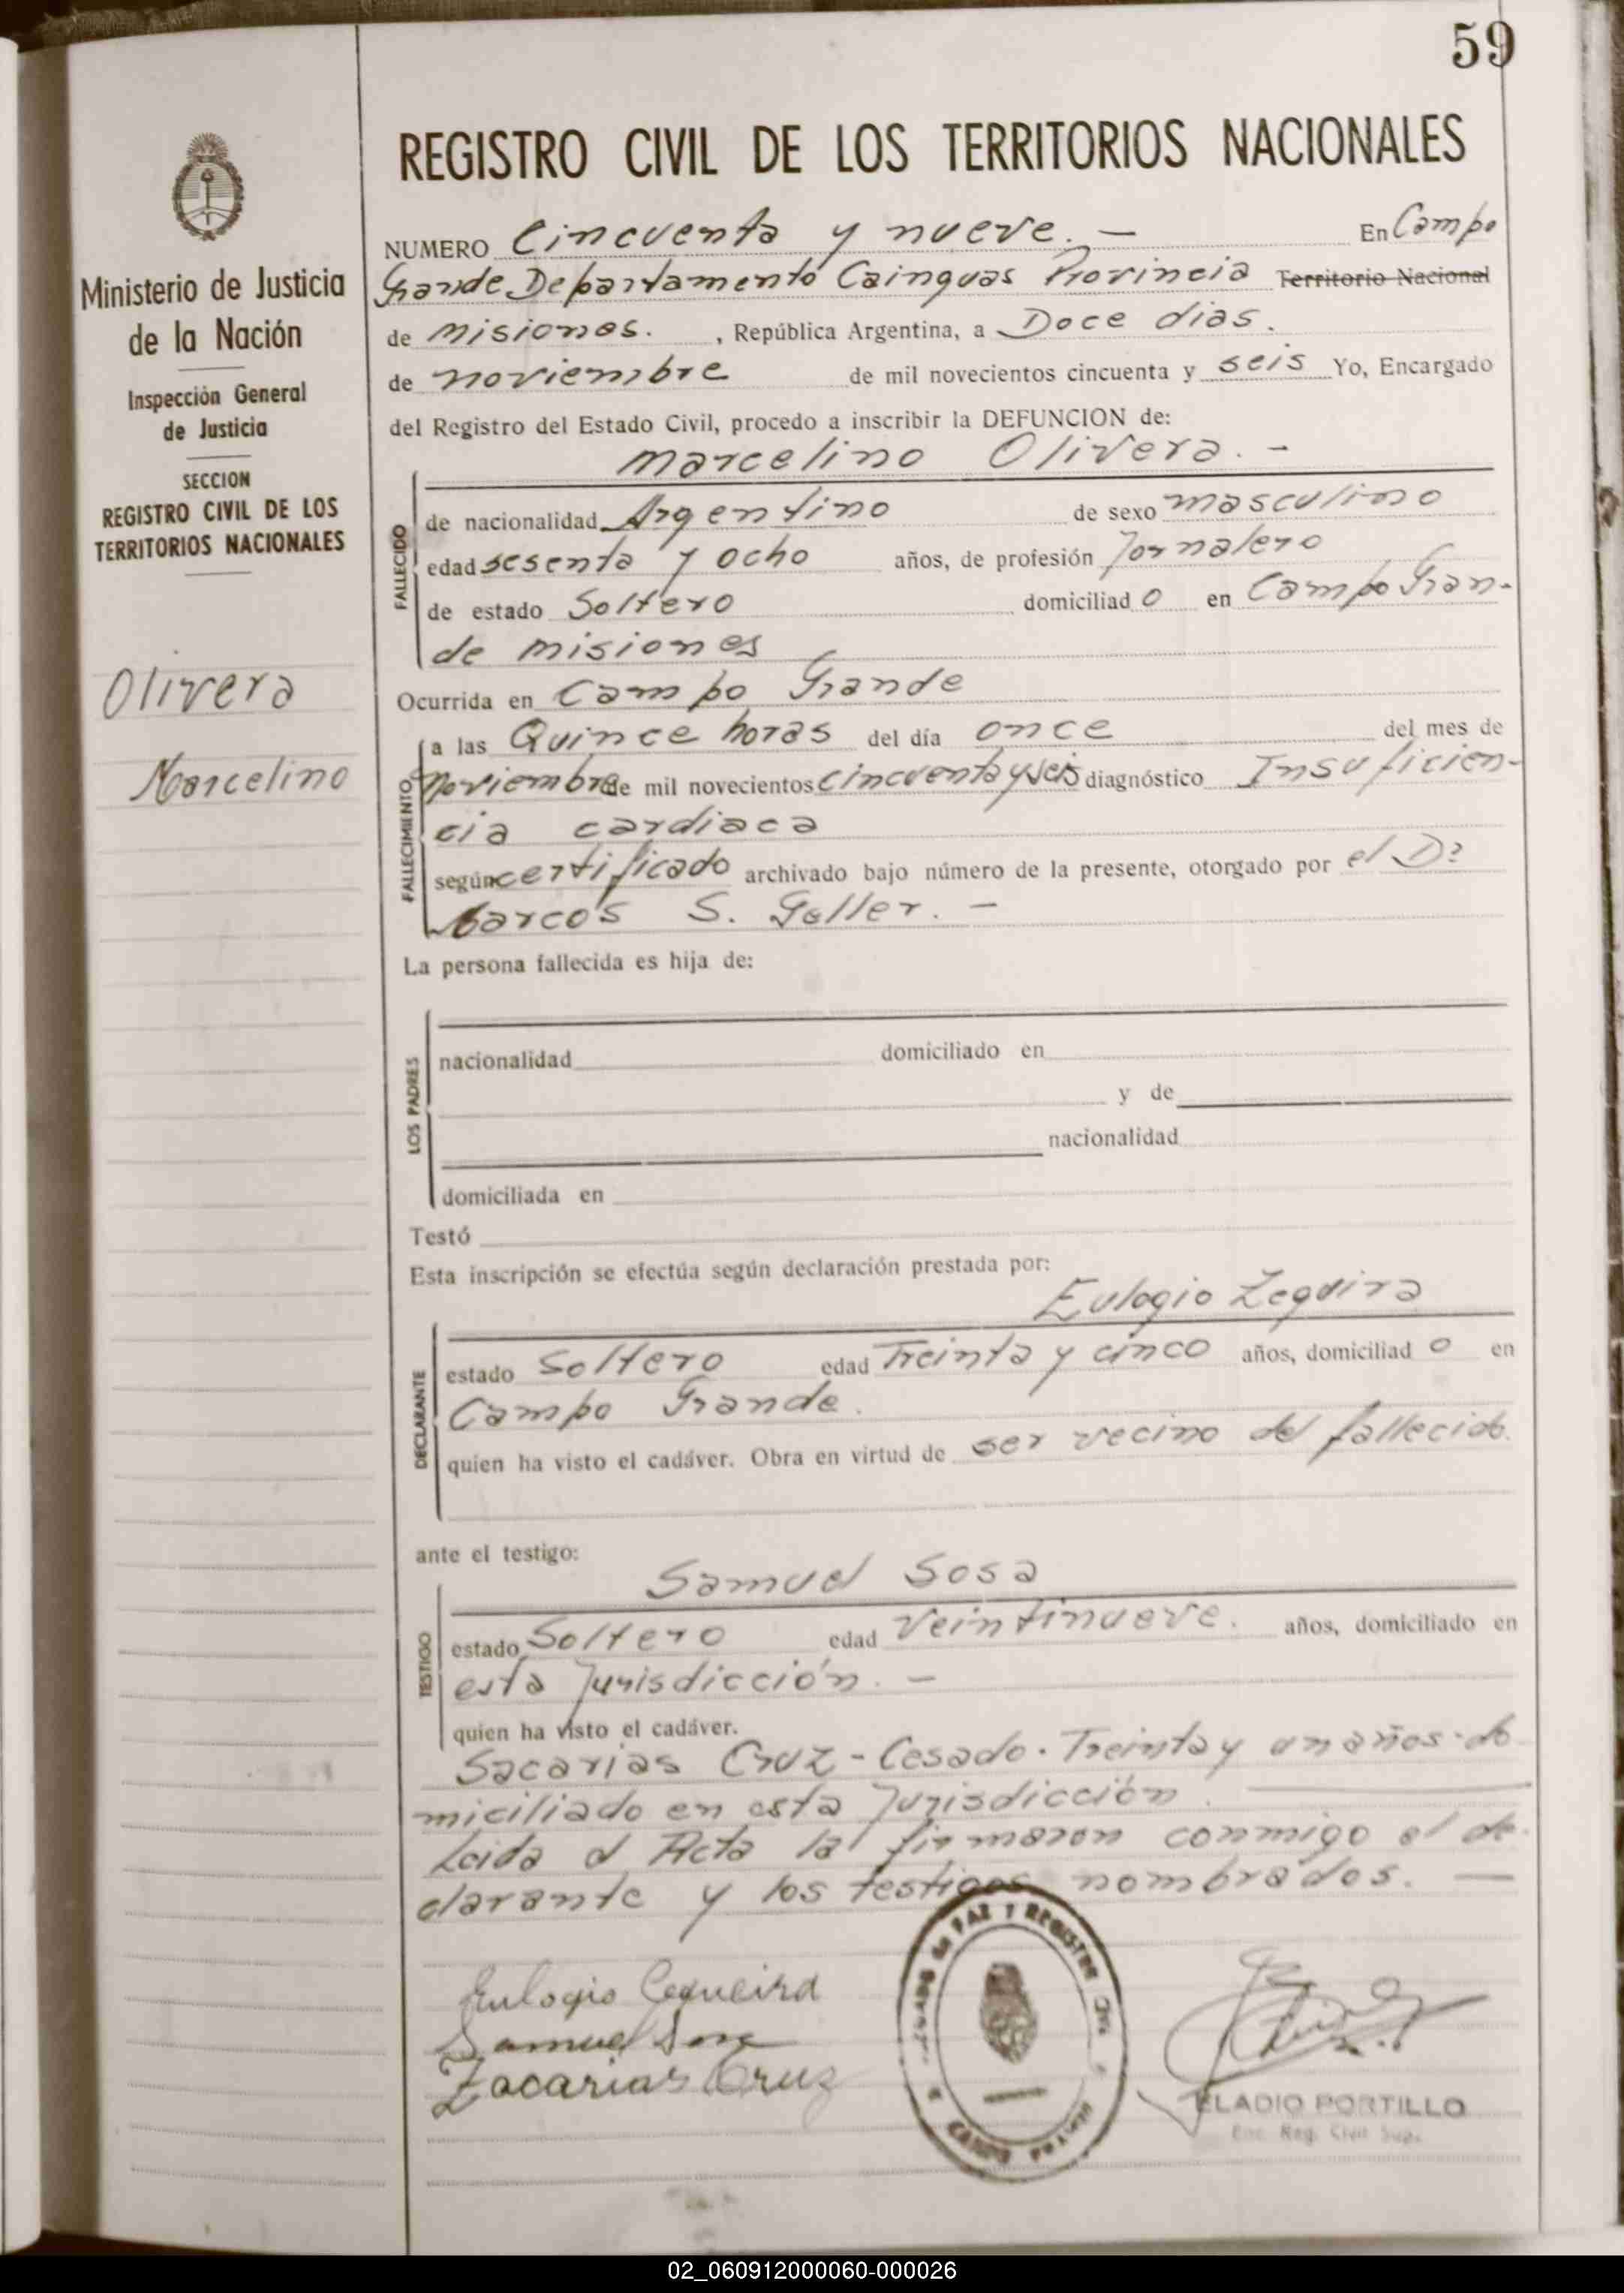 59
REGISTRO CIVIL DE LOS TERRITORIOS NACIONALES
Ministerio de Justicia
de la Nación
Inspección General
de Justicia
SECCION
REGISTRO CIVIL DE LOS
TERRITORIOS NACIONALES
Olivera
Marcelino
NUMERO Cincuenta y nueve. — En Campo
Grande Departamento Cainguas Provincia Territorio Nacional
de misiones. , República Argentina, a Doce dias.
de noviembre de mil novecientos cincuenta y seis Yo, Encargado
del Registro del Estado Civil, procedo a inscribir la DEFUNCION de:
marcelino Olivera. -
FALLECIDO
de nacionalidad Argentino de sexo masculino
edad sesenta y ocho años, de profesión Jornalero
de estado Soltero domiciliad o en Campo Gran-
de misiones
Ocurrida en Campo Grande
FALLECIMIENTO
a las Quince horas del día once del mes de
noviembre de mil novecientos cincuenta y seis diagnóstico Insuficien-
cia cardiaca
según certificado archivado bajo número de la presente, otorgado por el Dr
Marcos S. Galler. -
La persona fallecida es hija de:
LOS PADRES
nacionalidad domiciliado en
y de
nacionalidad
domiciliada en
Testó
Esta inscripción se efectúa según declaración prestada por:
Eulogio Zequira
DECLARANTE
estado Soltero edad Treinta y cinco años, domiciliad o en
Campo Grande.
quien ha visto el cadáver. Obra en virtud de ser vecino del fallecido.
ante el testigo:
Samuel Sosa
TESTIGO
estado Soltero edad Veintinueve. años, domiciliado en
esta Jurisdicción. -
quien ha visto el cadáver.
Sacarias Cruz - Casado. Treinta y un años. do
miciliado en esta Jurisdicción.
Leida el Acta la firmaron conmigo el de-
clarante y los testigos nombrados. —
Eulogio Cequeira
Samuel Sosa
Zacarias Cruz
de PAZ Y REGISTRO
ELADIO PORTILLO
Enc. Reg. Civil Supl.
02_060912000060-000026